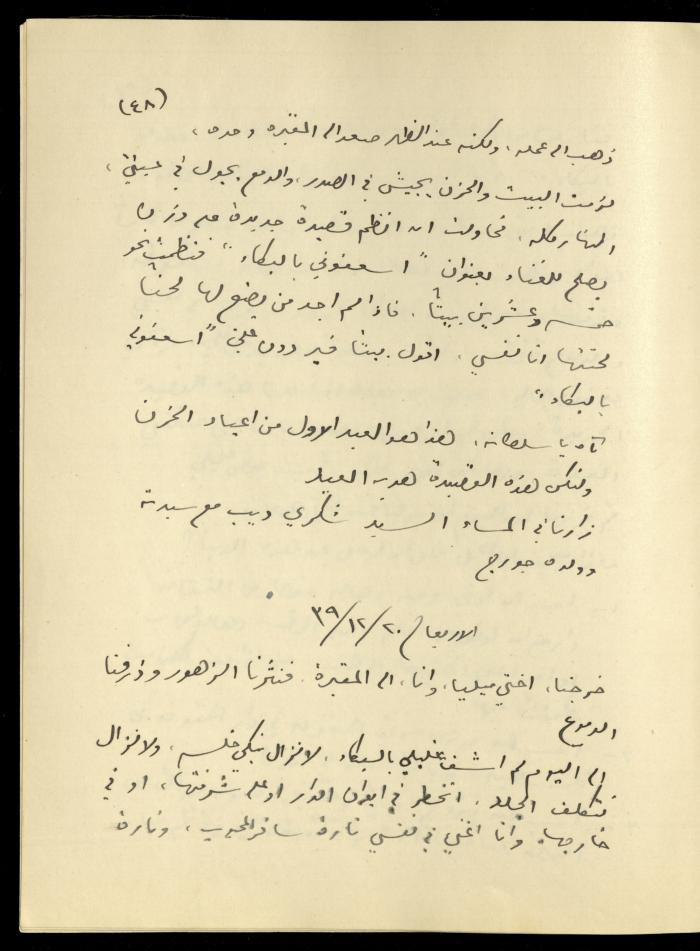 (٤٨)
ذهب الى عمله، ولكنه عند الظهر صعد الى المقبرة وحده،
لزمت البيت والحزن يجيش في الصدر، والدمع يجول في عينيّ،
النهار كله. فحاولت ان انظم قصيدة جديدة على وزن
يصلح للغناء بعنوان "اسعفوني بالبكاء" فنظمت نحو
خمسة وعشرين بيتًا. فاذا لم اجد من يضع لها لحنًا
لحنتها انا نفسي. اقول بيتًا فيرددون عليّ "اسعفوني
بالبكاء"
آه يا سلطانة. هذا هو العيد الاول من اعياد الحزن
ولتكن هذه القصيدة هدية العيد
زارنا في المساء السيد شكري ديب مع سيدته
وولده جورج
الاربعاء ٢٠/١٢/٣٩
خرجنا، اختي ميليا، وانا، الى المقبرة. فنثرنا الزهور وذرفنا
الدموع
الى اليوم لم اشف غليلي بالبكاء. لا نزال نبكي خلسة، ولا نزال
نتكلف الجلد. اتخطر في ايوان الدار او على شرفتها، او في
خارجها وانا اغني في نفسي تارة سافر المحبوب، وتارة